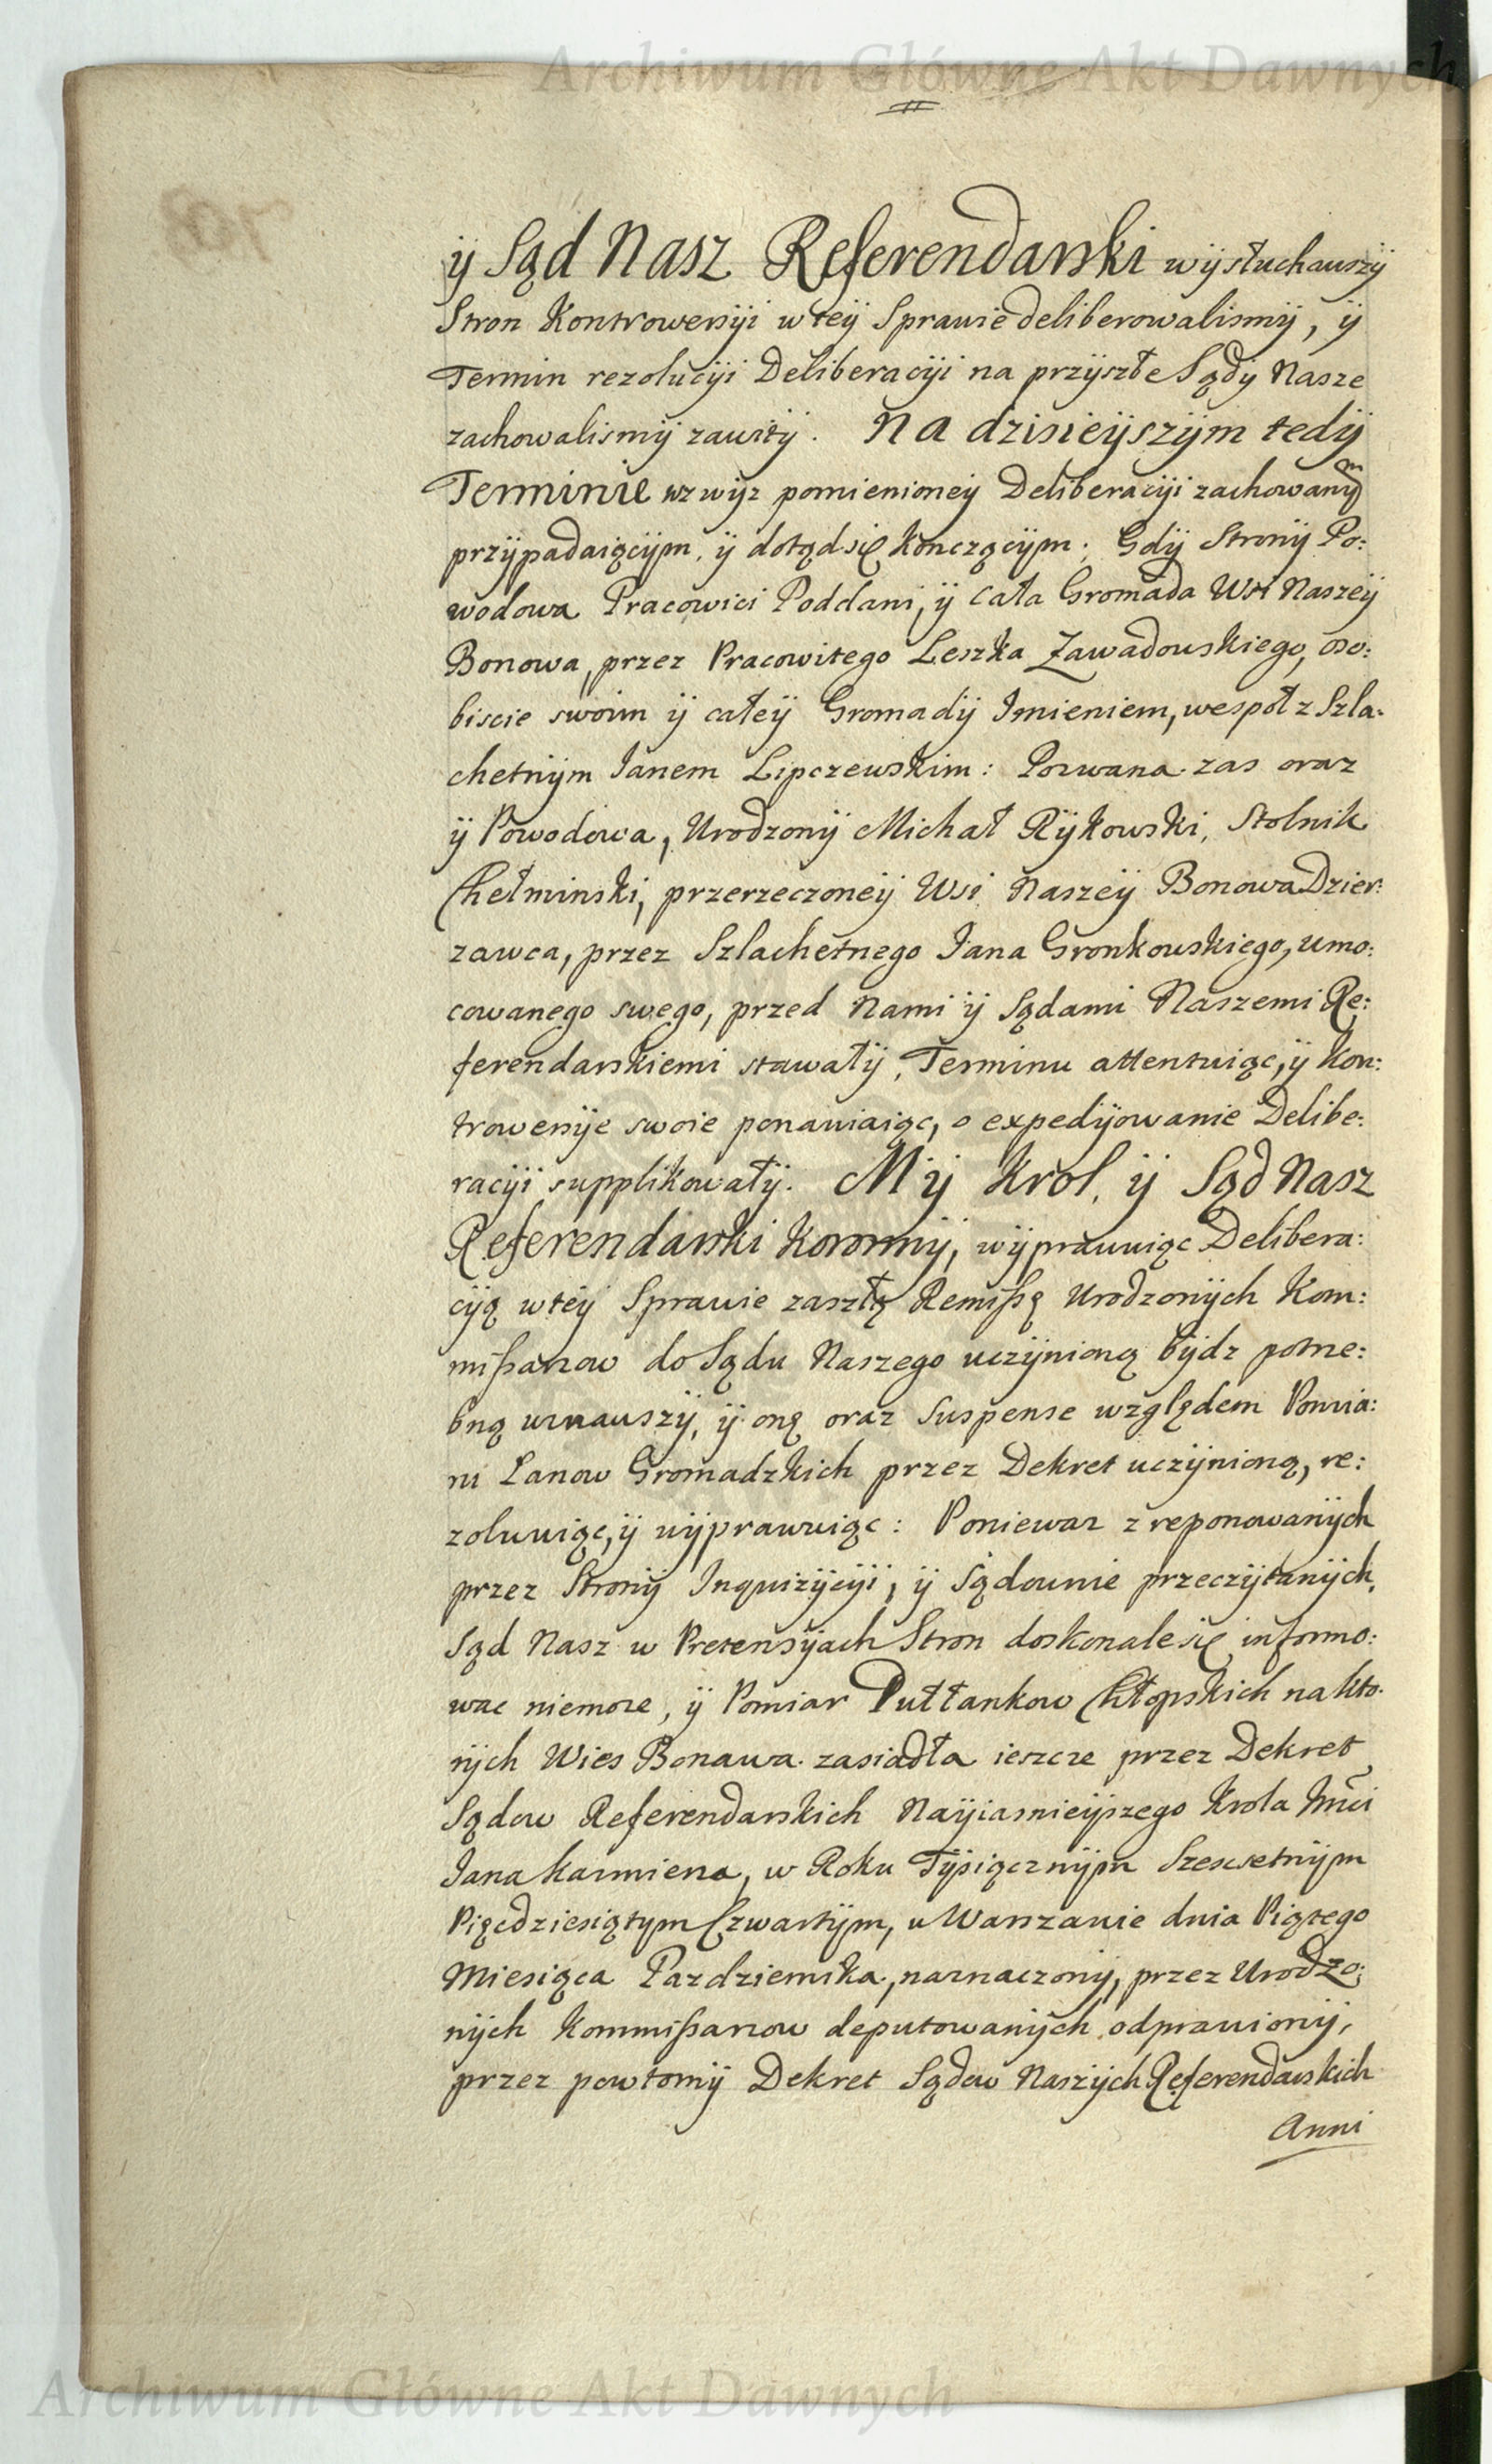 Archiwum Główne Akt Dawnych
ÿ Sąd Nasz Referendarski wÿsłuchawszÿ
Stron Kontrowersÿi w teÿ Sprawie deliberowalismÿ, ÿ
Termin rezolucÿi Deliberacÿi na przÿszłe Sądÿ Nasze
zachowalismÿ zawitÿ. Na dzisieÿszÿm tedÿ
Terminie wzwÿz pomienioneÿ Deliberacÿi zachowanÿm
przÿpadaiącÿm, ÿ dotąd się kończącÿm; Gdÿ Stronÿ Po:
wodowa Pracowici Poddani, ÿ cała Gromada Wsi Naszeÿ
Bonowa, przez Pracowitego Leszka Zawadowskiego, oso:
biscie swoim ÿ całeÿ Gromadÿ Imieniem, wespoł z Szla:
chetnÿm Ianem Lipczewskim: Pozwana zas oraz
ÿ Powodowa, Urodzonÿ Michał Rÿkowski, Stolnik
Chełminski, przerzeczoneÿ Wsi Naszeÿ Bonowa Dzier:
zawca, przez Szlachetnego Iana Gronkowskiego, umo:
cowanego swego, przed Nami ÿ Sądami Naszemi Re:
ferendarskiemi stawałÿ, Terminu attentuiąc, ÿ Kon:
trowersÿe swoie ponawiaiąc, o expedÿowanie Delibe:
racÿi supplikowałÿ. Mÿ Krol, ÿ Sąd Nasz
Referendarski Koronnÿ, wÿprawuiąc Delibera:
cÿą w teÿ Sprawie zaszłą Remißę Urodzonÿch Kom:
mißarzow do Sądu Naszego uczÿnioną bÿdz potrze:
bną uznawszÿ, ÿ onę oraz Suspense względem Pomia:
ru Lanow Gromadzkich przez Dekret uczÿnioną, re:
zolwuiąc, ÿ wÿprawuiąc: Poniewaz z reponowanÿch
przez Stronÿ Inquizÿcÿi, ÿ Sądownie przeczÿtanÿch,
Sąd Nasz w Pretensÿach Stron doskonale się informo:
wac niemoze, ÿ Pomiar Pułłankow Chłopskich na kto:
rÿch Wies Bonawa zasiadła ieszcze przez Dekret
Sądow Referendarskich Naÿiasnieÿszego Krola Jmci
Iana Kazmierza, w Roku Tÿsiącznÿm Szescsetnÿm
Pięcdziesiątym Czwartÿm, w Warszawie dnia Piątego
Miesiąca Pazdziernika, naznaczonÿ, przez Urodzo:
nÿch Kommißarzow deputowanÿch odprawionÿ,
przez powtornÿ Dekret Sądow Naszÿch Referendarskich
Anni
Archiwum Główne Akt Dawnych